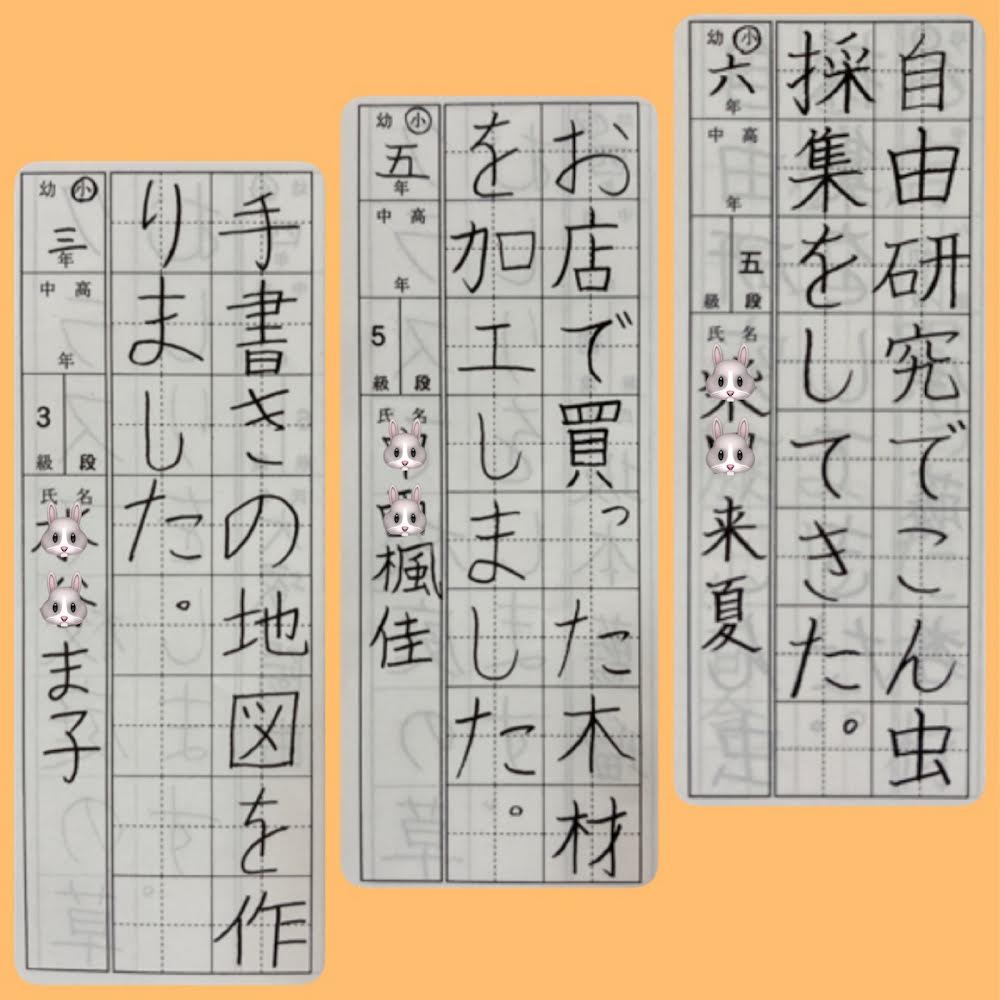 自由研究でこん虫
採集をしてきた。
幼 小
六年
中 高
年
五段
級
氏 名
来夏
お店で買った木材
を加工しました。
幼 小
五年
中 高
年
5級
段
氏 名
楓佳
手書きの地図を作
りました。
幼 小
三年
中 高
年
3級
段
氏 名
ま子